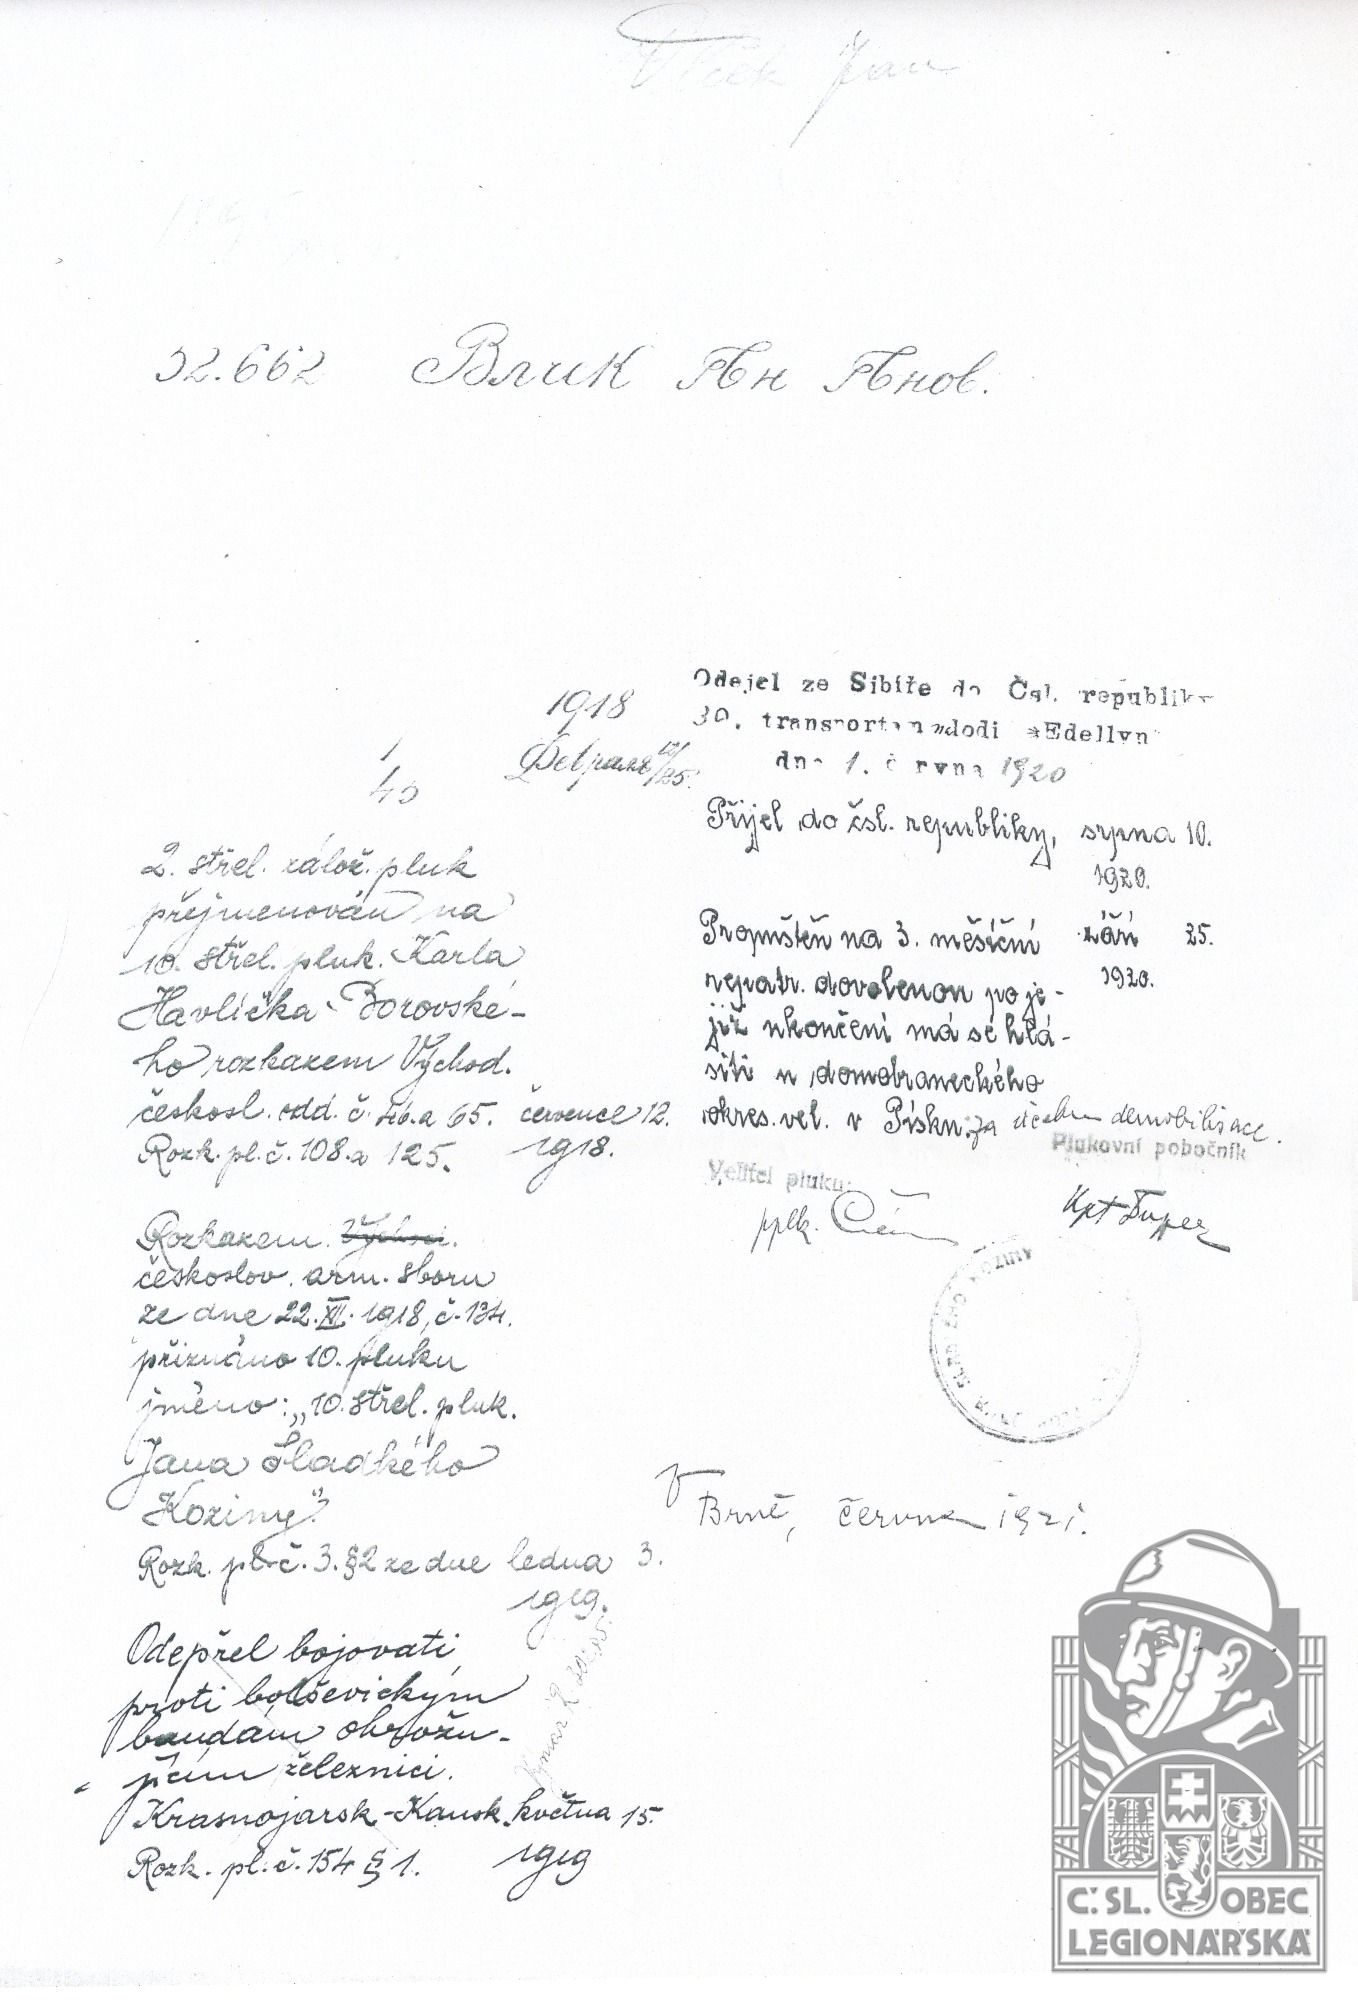 Vlček Jan
52.662 Влчк Ян Янов.
1918
1
Февраля 12/25.
40
2. střel. zálož. pluk
přejmenován na
10. střel. pluk. Karla
Havlíčka-Borovské-
ho rozkazem Východ.
českosl. odd. č. 46. a 65. července 12.
Rozk. pl. č. 108. a 125. 1918.
Rozkazem
českoslov. arm. sboru
ze dne 22. XII. 1918, č. 134.
přiznáno 10. pluku
jméno: „10. střel. pluk.
Jana Sladkého
Koziny."
Rozk. pl. č. 3. §2 ze dne ledna 3.
1919.
Odepřel bojovati
proti bolševickým
bandám ohrožu-
jícím železnici.
Krasnojarsk-Kansk. května 15.
Rozk. pl. č. 154 § 1. 1919
Odejel ze Sibíře do Čsl. republiky
30. transportem lodi »Edellyn
dne 1. června 1920
Přijel do čsl. republiky, srpna 10.
1920.
Propuštěn na 3. měsíční září 25.
repatr. dovolenou po je- 1920.
jíž ukončení má se hlá-
siti u domobraneckého
okres. vel. v Písku. za účelem demobilisace.
Plukovní pobočník
Velitel pluku:
pplk.
Kpt
SLADKÉHO KOZINY
V
Brně, června 1921.
Č.SL. OBEC
LEGIONÁŘSKÁ